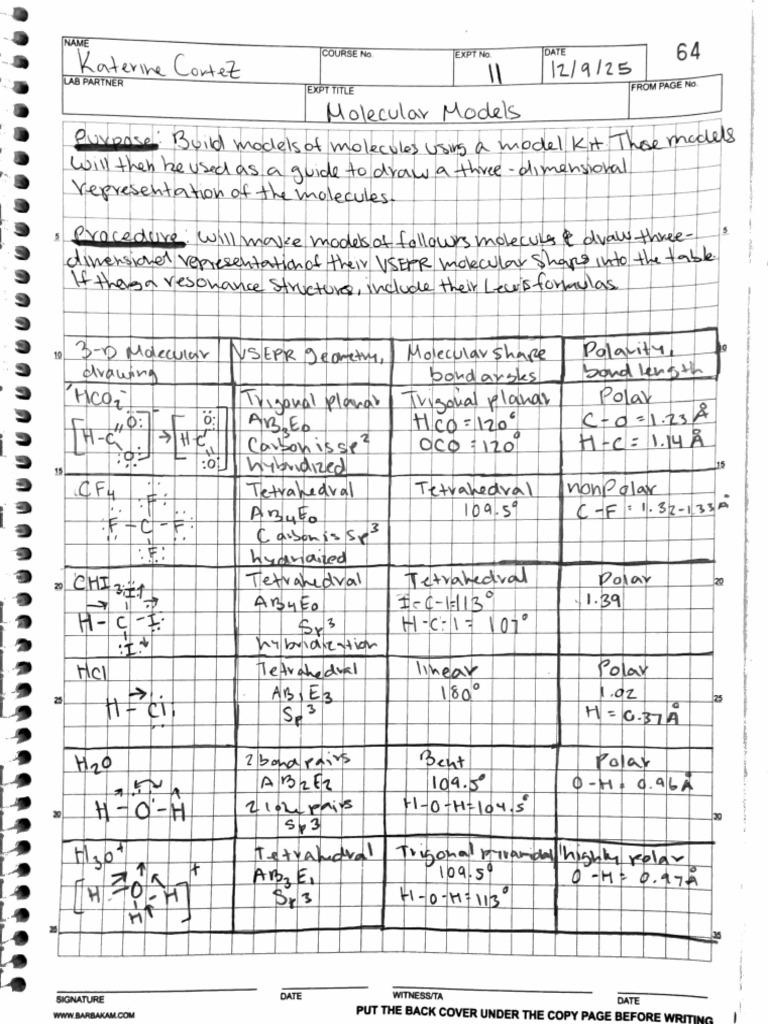 NAME
Katerine Cortez
COURSE No.
EXPT No.
11
DATE
12/9/25
64
LAB PARTNER
EXPT TITLE
Molecular Models
FROM PAGE No.
Purpose: Build models of molecules using a model kit These models
will then be used as a guide to draw a three-dimensional
representation of the molecules.
5
5
Procedure: will make models of follows molecules & draw three-
dimensional representation of their VSEPR molecular shape into the table
If theres a resonance structure, include their Lewis formulas
10
10
3-D Molecular
drawing
VSEPR geometry,
Molecular shape
bond angles
Polarity,
bond length
HCO2-
[H-C O O]- → [H-C O O]-
Trigonal planar
AB3E0
Carbon is sp2
hybridized
Trigonal planar
HCO = 120°
OCO = 120°
Polar
C-O = 1.23 Å
H-C = 1.14 Å
15
15
CF4
F
F-C-F
F
Tetrahedral
AB4E0
Carbon is sp3
hydriaized
Tetrahedral
109.5°
nonPolar
C-F = 1.32-1.33 Å
20
20
CHI3
I
H-C-I
I
Tetrahedral
AB4E0
Sp3
hybridization
Tetrahedral
I-C-I=113°
H-C-I = 107°
Polar
1.39
HCl
H-Cl
Tetrahedral
AB1E3
Sp3
linear
180°
Polar
1.02
H = 0.37Å
25
25
H2O
H-O-H
2 bond pairs
AB2E2
2 lone pairs
Sp3
Bent
109.5°
H-O-H=104.5°
Polar
O-H = 0.96Å
30
30
H3O+
[H O H
H]+
Tetrahedral
AB3E1
Sp3
Trigonal pyramidal
109.5°
H-O-H=113°
highly polar
O-H = 0.97Å
35
35
SIGNATURE
DATE
WITNESS/TA
DATE
WWW.BARBAKAM.COM
PUT THE BACK COVER UNDER THE COPY PAGE BEFORE WRITING